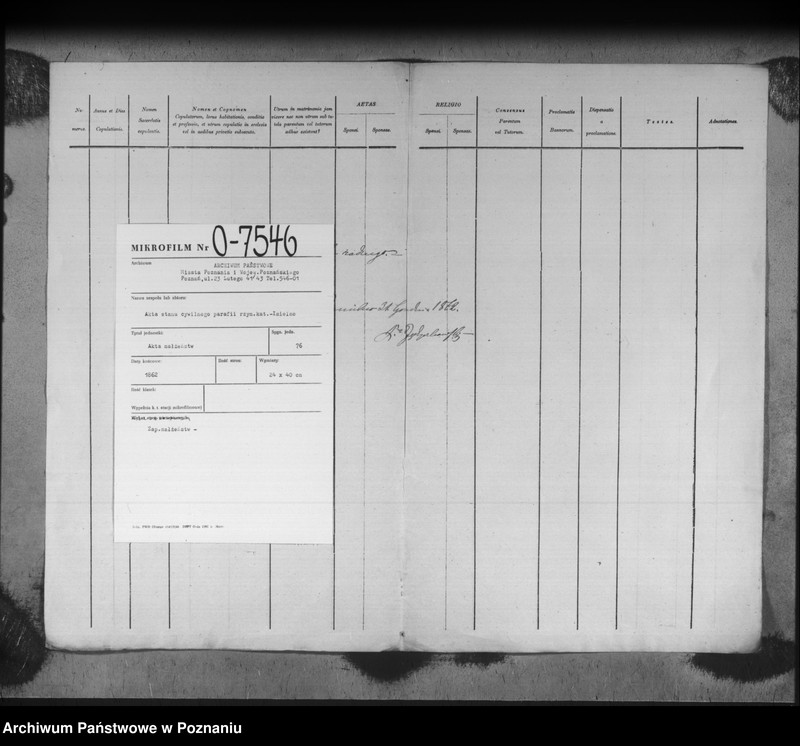 Nu-
merus.
Annus et Dies
Copulationis.
Nomen
Sacerdotis
copulantis.
Nomen et Cognomen
Copulatorum, locus habitationis, conditio
et professio, et utrum copulatio in ecclesia
vel in aedibus privatis subsecuta.
Utrum in matrimonio jam
vixere nec non utrum sub tu-
tela parentum vel tutorum
adhuc existent?
AETAS
Sponsi.
Sponsae.
RELIGIO
Sponsi.
Sponsae.
Consensus
Parentum
vel Tutorum.
Proclamatio
Bannorum.
Dispensatio
a
proclamatione.
Testes.
Adnotationes.
MIKROFILM Nr O-7546
Archiwum
ARCHIWUM PAŃSTWOWE
Miasta Poznania i Wojew. Poznańskiego
Poznań, ul. 23 Lutego 41/43 Tel. 546-01
Nazwa zespołu lub zbioru:
Akta stanu cywilnego parafii rzym.kat.-
Tytuł jednostki:
Akta małżeństw
Sygn. jedn.
76
Daty krańcowe:
1862
Ilość stron:
Wymiary:
24 x 40 cm
Ilość klatek:
Wypełnia k. t. stacji mikrofilmowej
Zap.małżeństw -
1862.
Archiwum Państwowe w Poznaniu